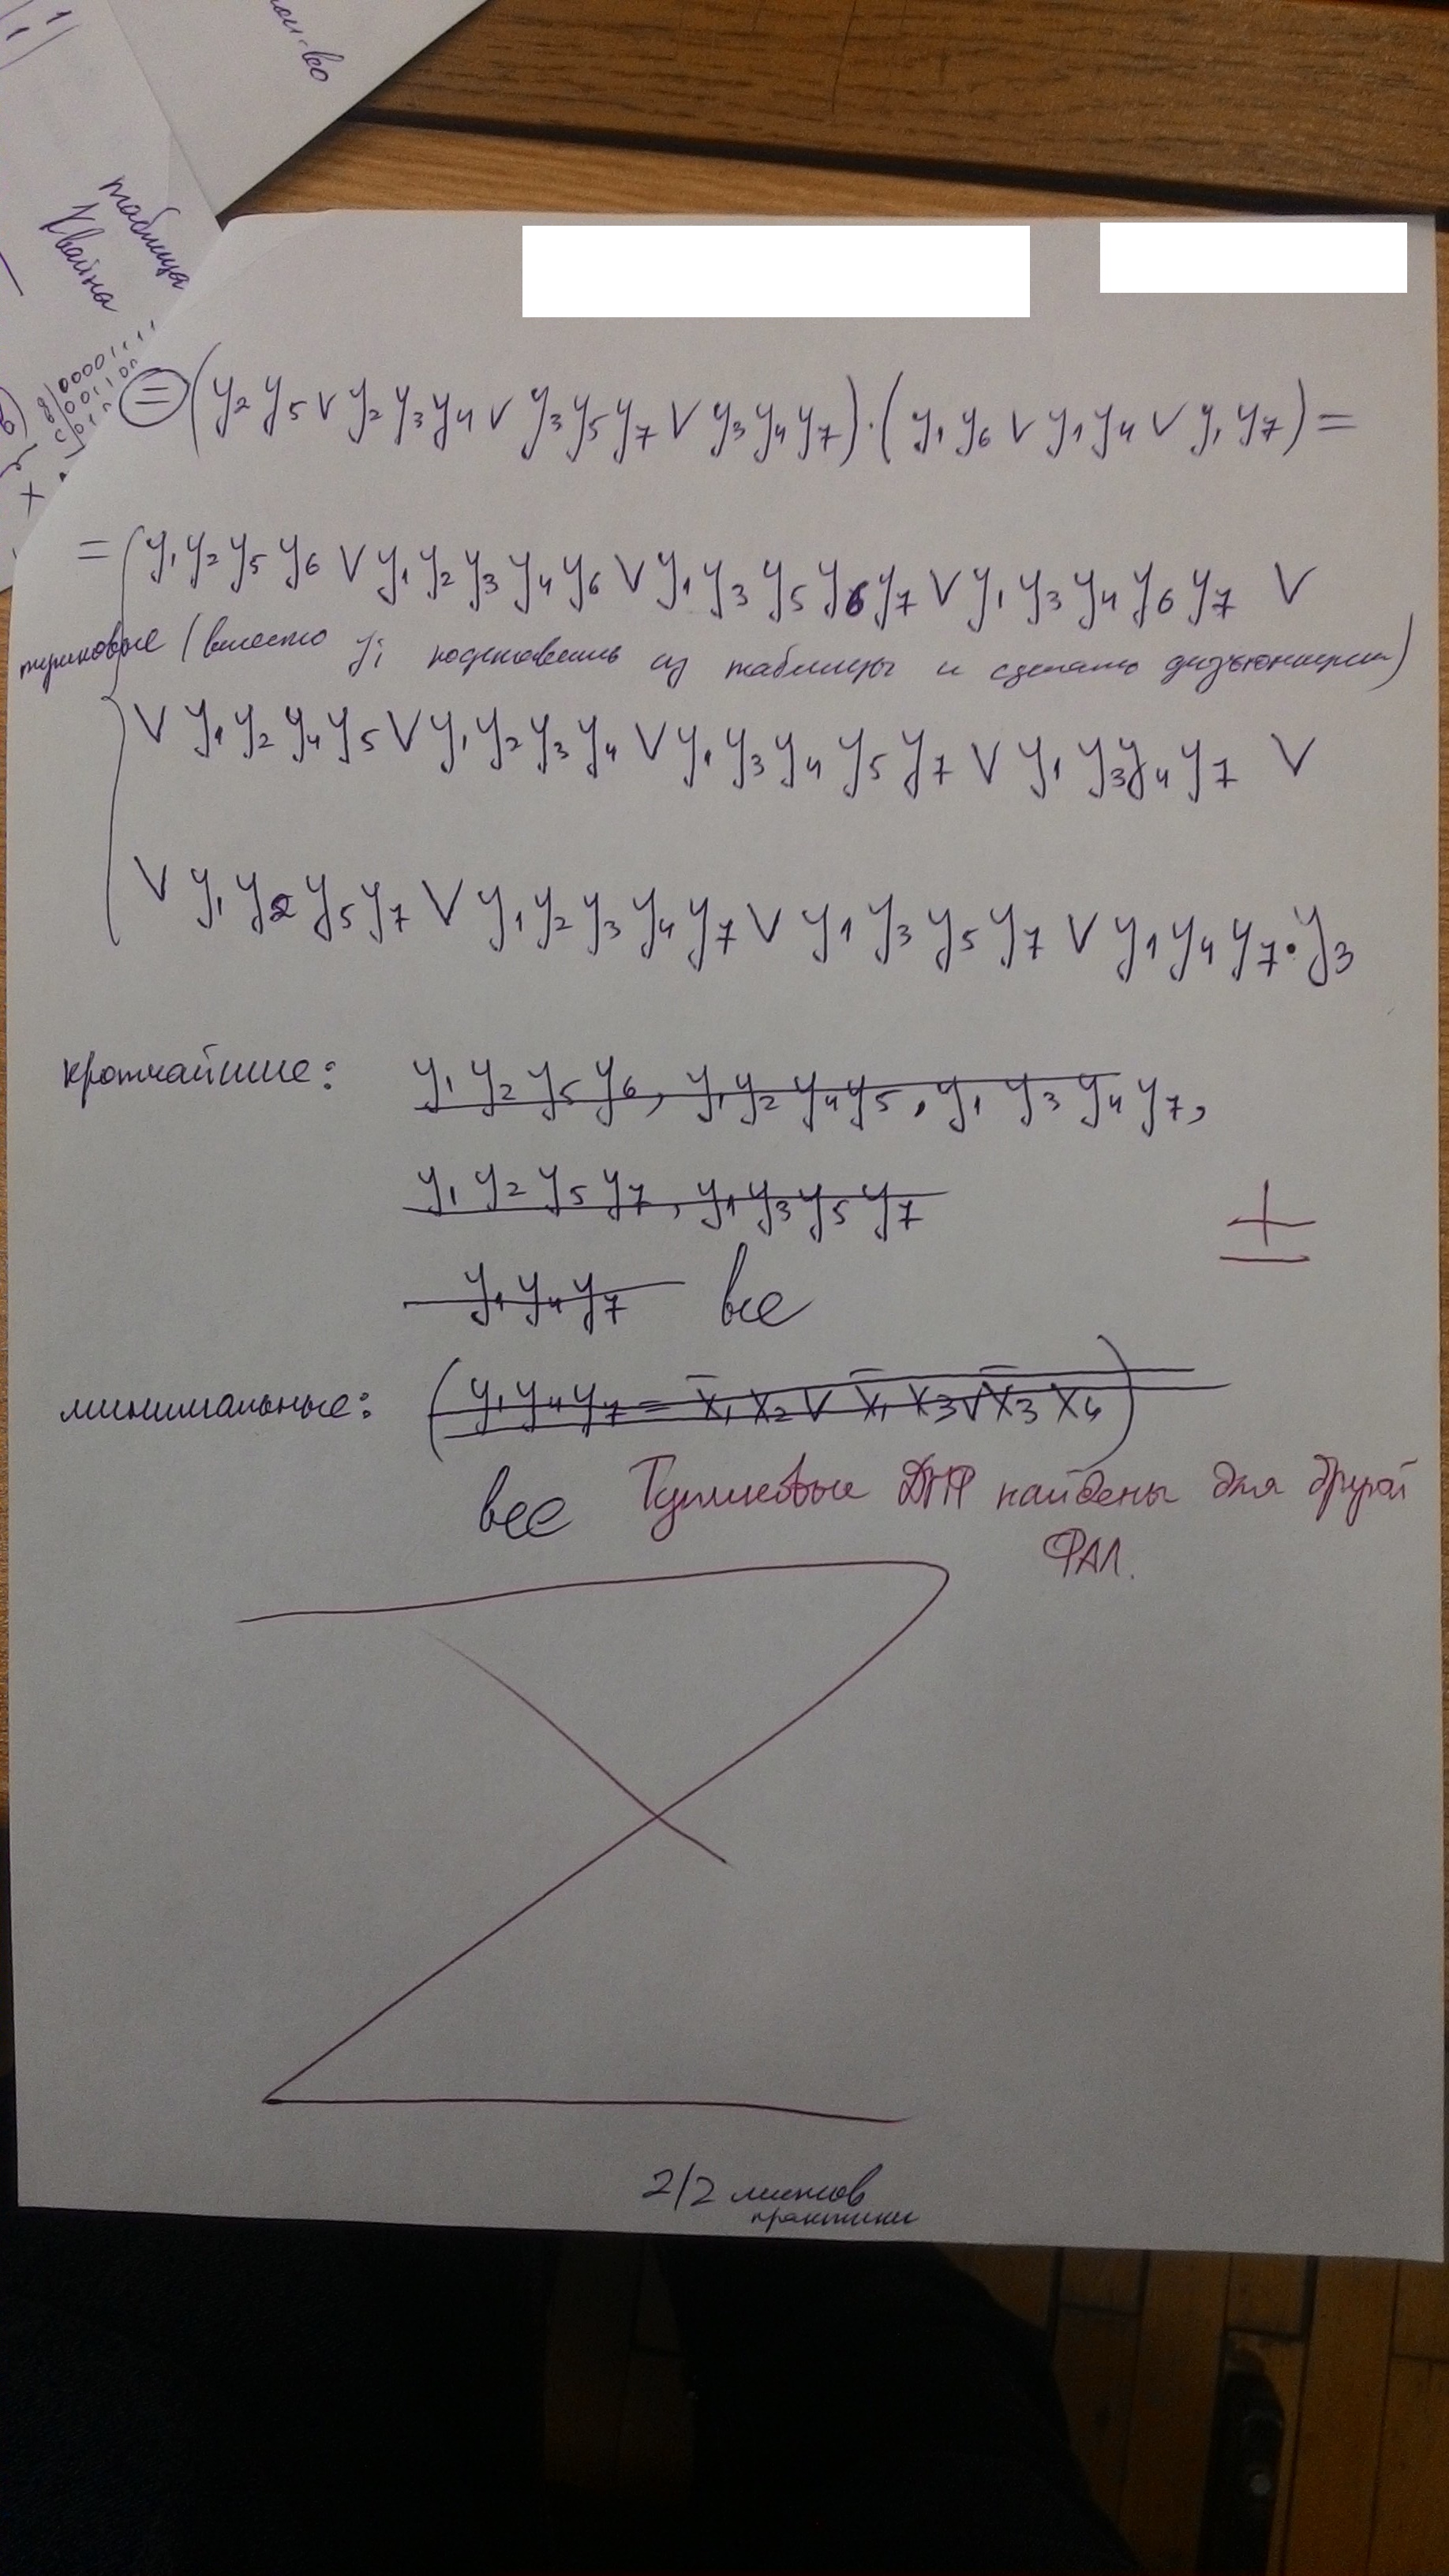 таблица
Квайна
(=) (y₂y₅ ∨ y₂y₃y₄ ∨ y₃y₅y₇ ∨ y₃y₄y₇)·(y₁y₆ ∨ y₁y₄ ∨ y₁y₇) =
= y₁y₂y₅y₆ ∨ y₁y₂y₃y₄y₆ ∨ y₁y₃y₅y₆y₇ ∨ y₁y₃y₄y₆y₇ ∨
тупиковые (вместо yᵢ подставить из таблицы и сделать дизъюнкции)
∨ y₁y₂y₄y₅ ∨ y₁y₂y₃y₄ ∨ y₁y₃y₄y₅y₇ ∨ y₁y₃y₄y₇ ∨
∨ y₁y₂y₅y₇ ∨ y₁y₂y₃y₄y₇ ∨ y₁y₃y₅y₇ ∨ y₁y₄y₇·y₃
кротчайшие: y₁y₂y₅y₆, y₁y₂y₄y₅, y₁y₃y₄y₇,
y₁y₂y₅y₇, y₁y₃y₅y₇
y₁y₄y₇ все
±
минимальные: (y₁y₄y₇ = x̄₁x₂ ∨ x̄₁x₃ ∨ x̄₃x₄)
все Тупиковые ДНФ найдены для другой
ФАЛ.
2/2 листов
практики